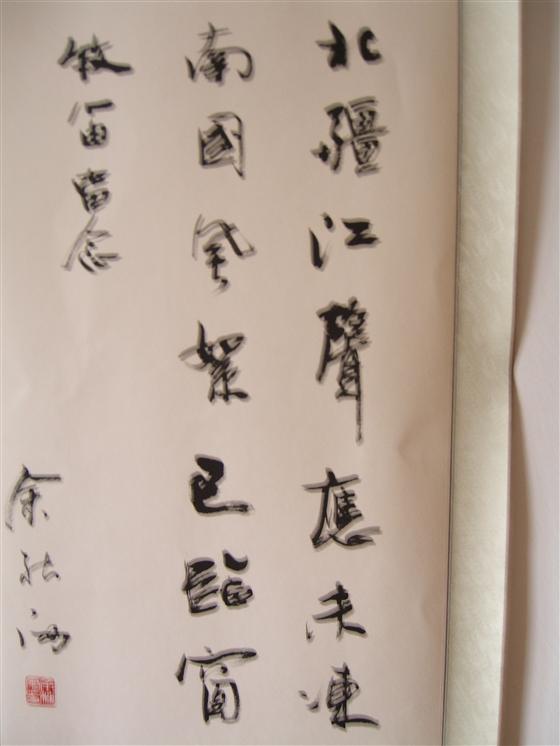 北疆江聲應未凍
南國風絮已臨窗
牧笛留念
余秋雨